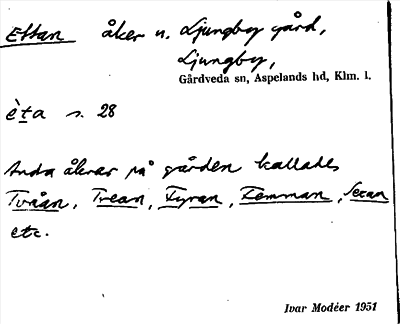 Ettan åker u. Ljungby gård,
Ljungby,
Gårdveda sn, Aspelands hd, Klm. l.
èta s. 28
Andra åkrar på gården kallades
Tvåan, Trean, Fyran, Femman, Sexan
etc.
Ivar Modéer 1951